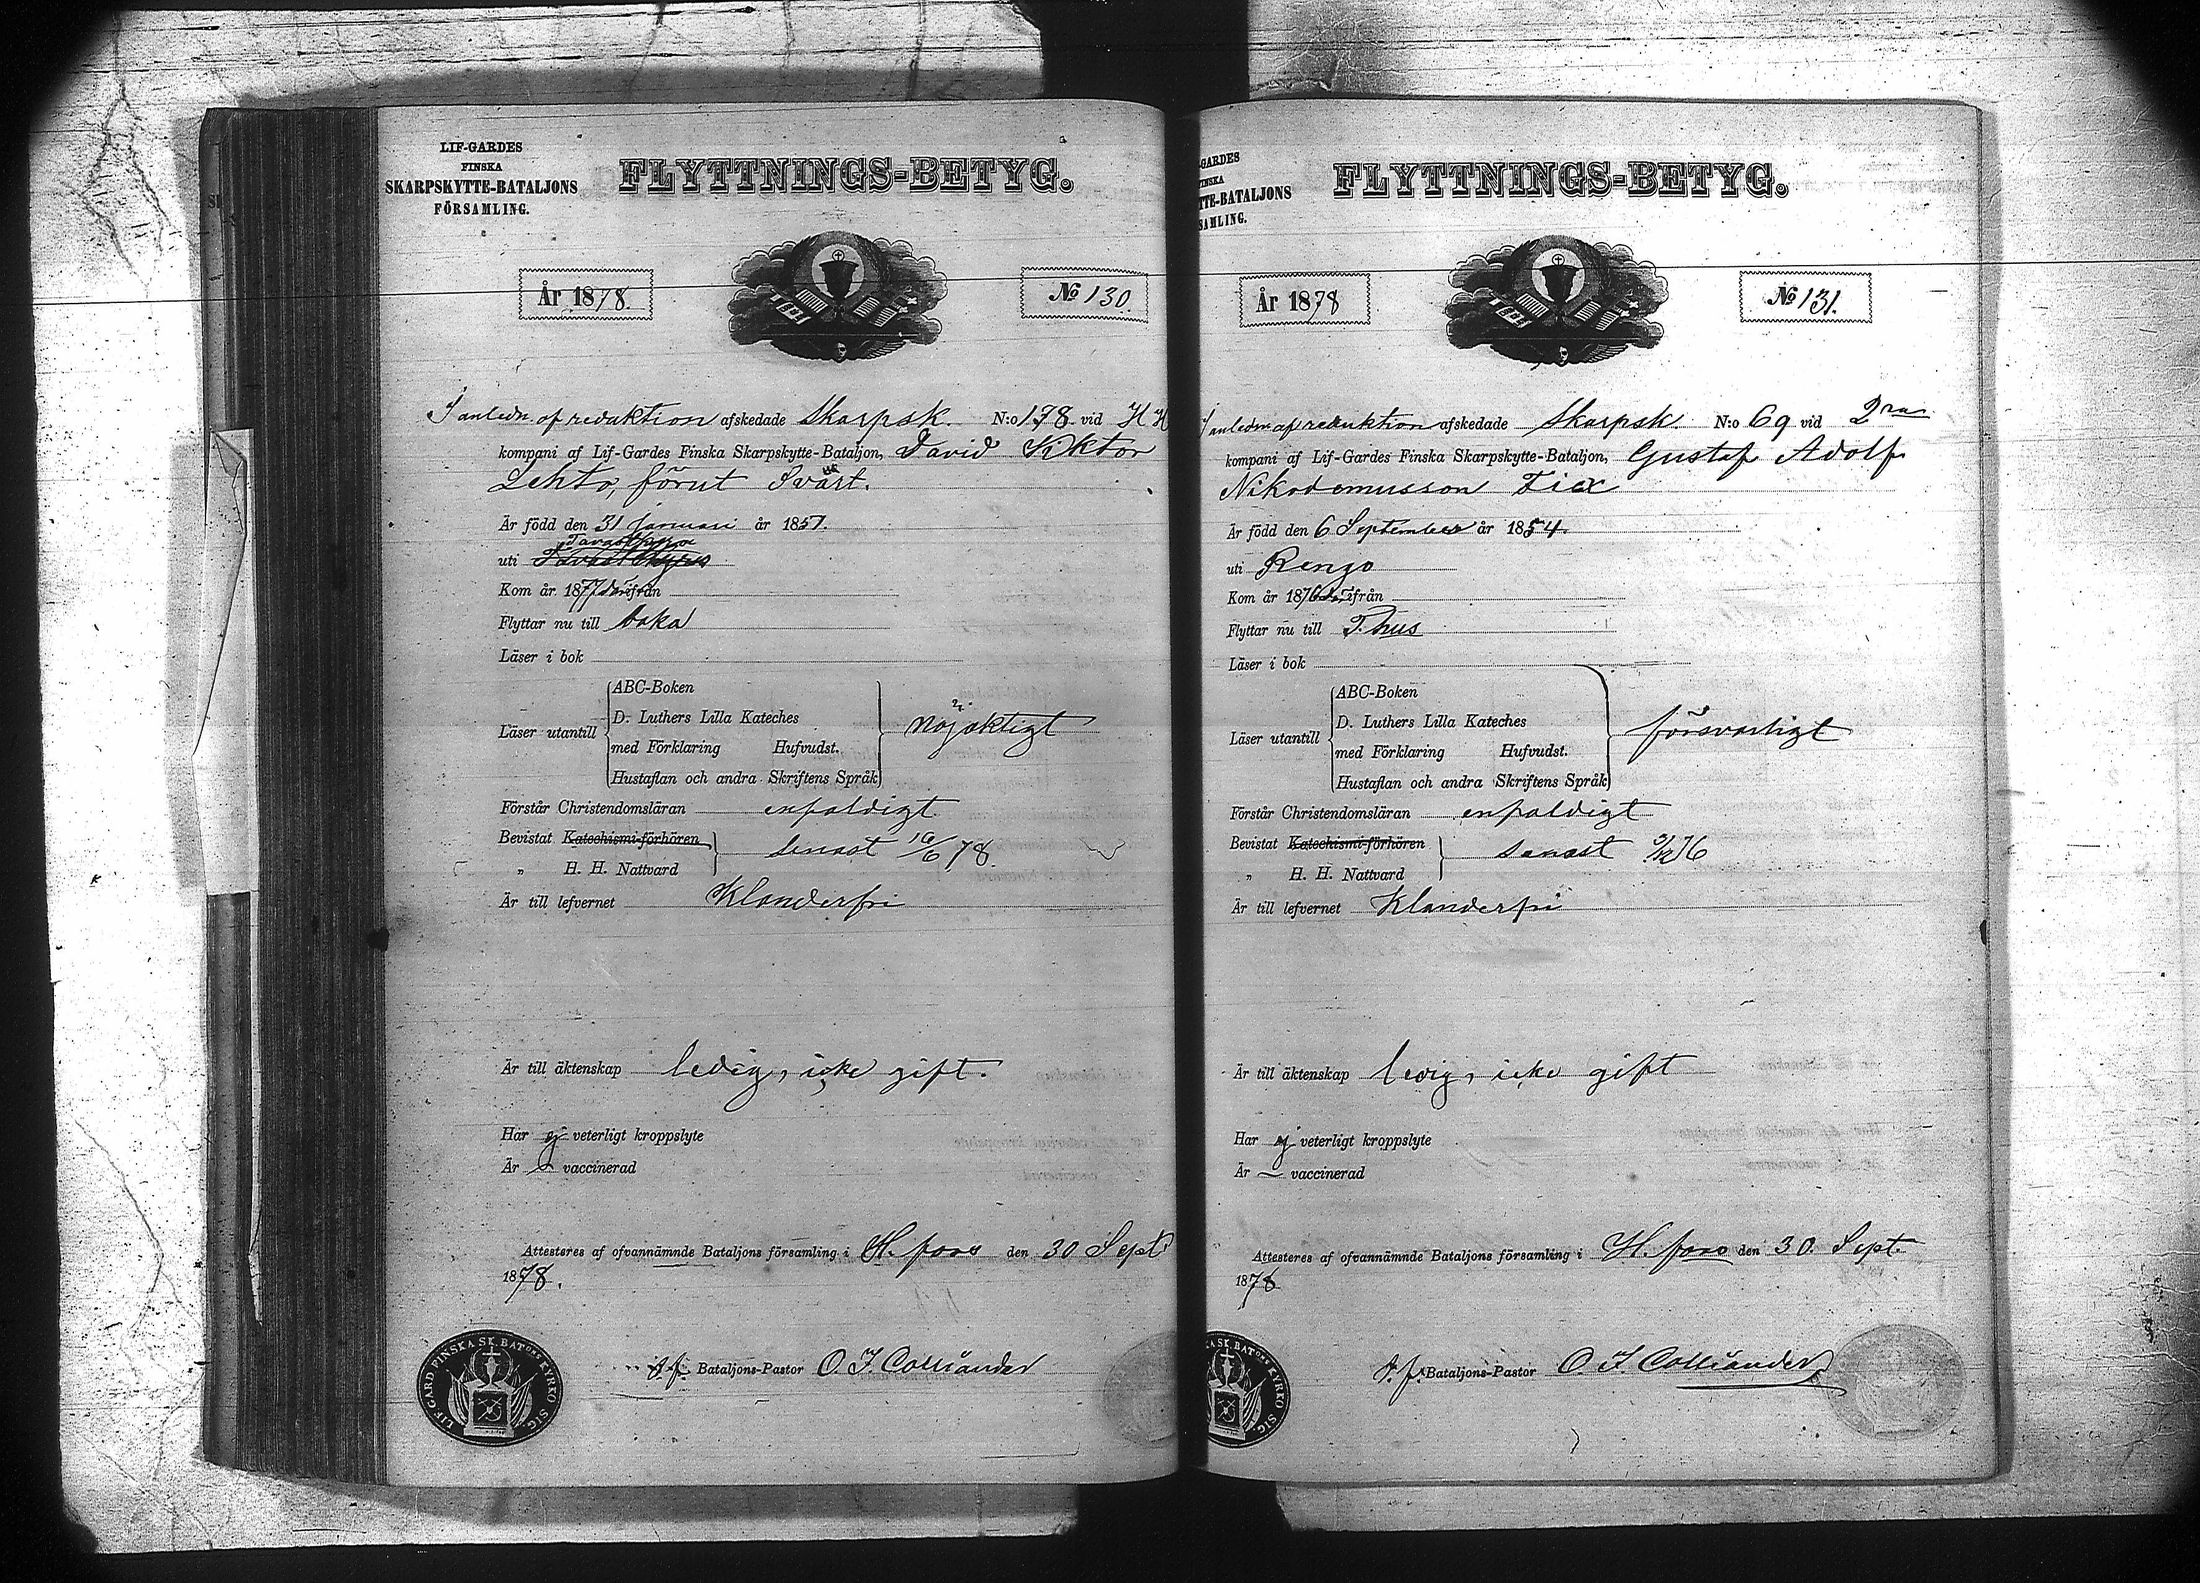 LIF-GARDES
FINSKA
SKARPSKYTTE-BATALJONS
FÖRSAMLING.
FLYTTNINGS-BETYG.
År 1878.
No 130.
I anledn. af reduktion afskedade Skarpsk. N:o 178 vid H H
kompani af Lif-Gardes Finska Skarpskytte-Bataljon, David Viktor
Lehto, förut Svart.
Är född den 31 Januari år 1857.
uti
Kom år 1877 ifrån
Flyttar nu till
Läser i bok
Läser utantill
ABC-Boken
D. Luthers Lilla Kateches
med Förklaring Hufvudst.
Hustaflan och andra Skriftens Språk
nöjaktigt
Förstår Christendomsläran enfaldigt
Bevistat Katechismi-förhören
„ H. H. Nattvard
senast 16/6 78.
Är till lefvernet Klanderfri
Är till äktenskap ledig, icke gift.
Har ej veterligt kroppslyte
Är vaccinerad
Attesteres af ofvannämnde Bataljons församling i H.fors den 30 Sept.
1878.
LIF.GARD.FINSKA SK.BATONS KYRKO SIG.
t.f. Bataljons-Pastor O. F. Colliander
GARDES
INSKA
TTE-BATALJONS
SAMLING.
FLYTTNINGS-BETYG.
År 1878
No 131.
I anledn. af reduktion afskedade Skarpsk. N:o 69 vid 2ra
kompani af Lif-Gardes Finska Skarpskytte-Bataljon, Gustaf Adolf
Nikodemusson
Är född den 6 September år 1854.
uti Rengo
Kom år 1876 ifrån
Flyttar nu till T.hus
Läser i bok
Läser utantill
ABC-Boken
D. Luthers Lilla Kateches
med Förklaring Hufvudst.
Hustaflan och andra Skriftens Språk
försvarligt
Förstår Christendomsläran enfaldigt
Bevistat Katechismi-förhören
„ H. H. Nattvard
senast 3/12 76
Är till lefvernet Klanderfri
Är till äktenskap ledig, icke gift
Har ej veterligt kroppslyte
Är vaccinerad
Attesteres af ofvannämnde Bataljons församling i H.fors den 30. Sept.
1878
KA SK.BATONS KYRKO SIG.
t.f. Bataljons-Pastor O. F. Colliander